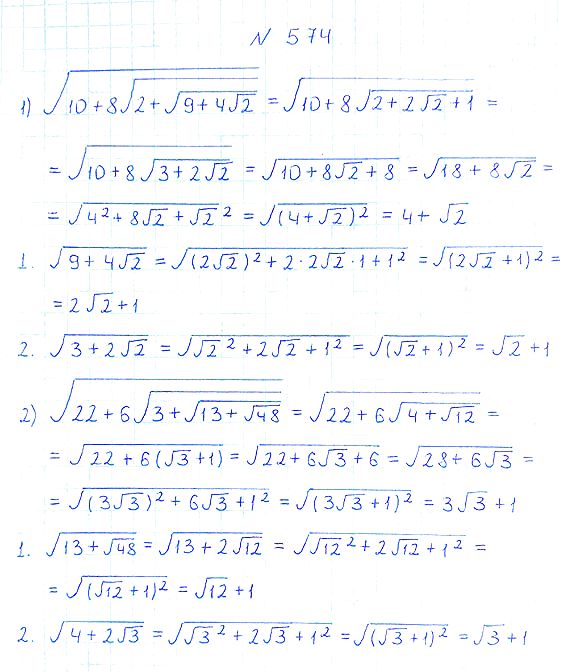 N 574
1) √(10+8√(2+√(9+4√2))) = √(10+8√(2+2√2+1)) =
= √(10+8√(3+2√2)) = √(10+8√2+8) = √(18+8√2) =
= √(4²+8√2+√2²) = √((4+√2)²) = 4+√2
1. √(9+4√2) = √((2√2)²+2·2√2·1+1²) = √((2√2+1)²) =
= 2√2+1
2. √(3+2√2) = √(√2²+2√2+1²) = √((√2+1)²) = √2+1
2) √(22+6√(3+√(13+√48))) = √(22+6√(4+√12)) =
= √(22+6(√3+1)) = √(22+6√3+6) = √(28+6√3) =
= √((3√3)²+6√3+1²) = √((3√3+1)²) = 3√3+1
1. √(13+√48) = √(13+2√12) = √(√12²+2√12+1²) =
= √((√12+1)²) = √12+1
2. √(4+2√3) = √(√3²+2√3+1²) = √((√3+1)²) = √3+1